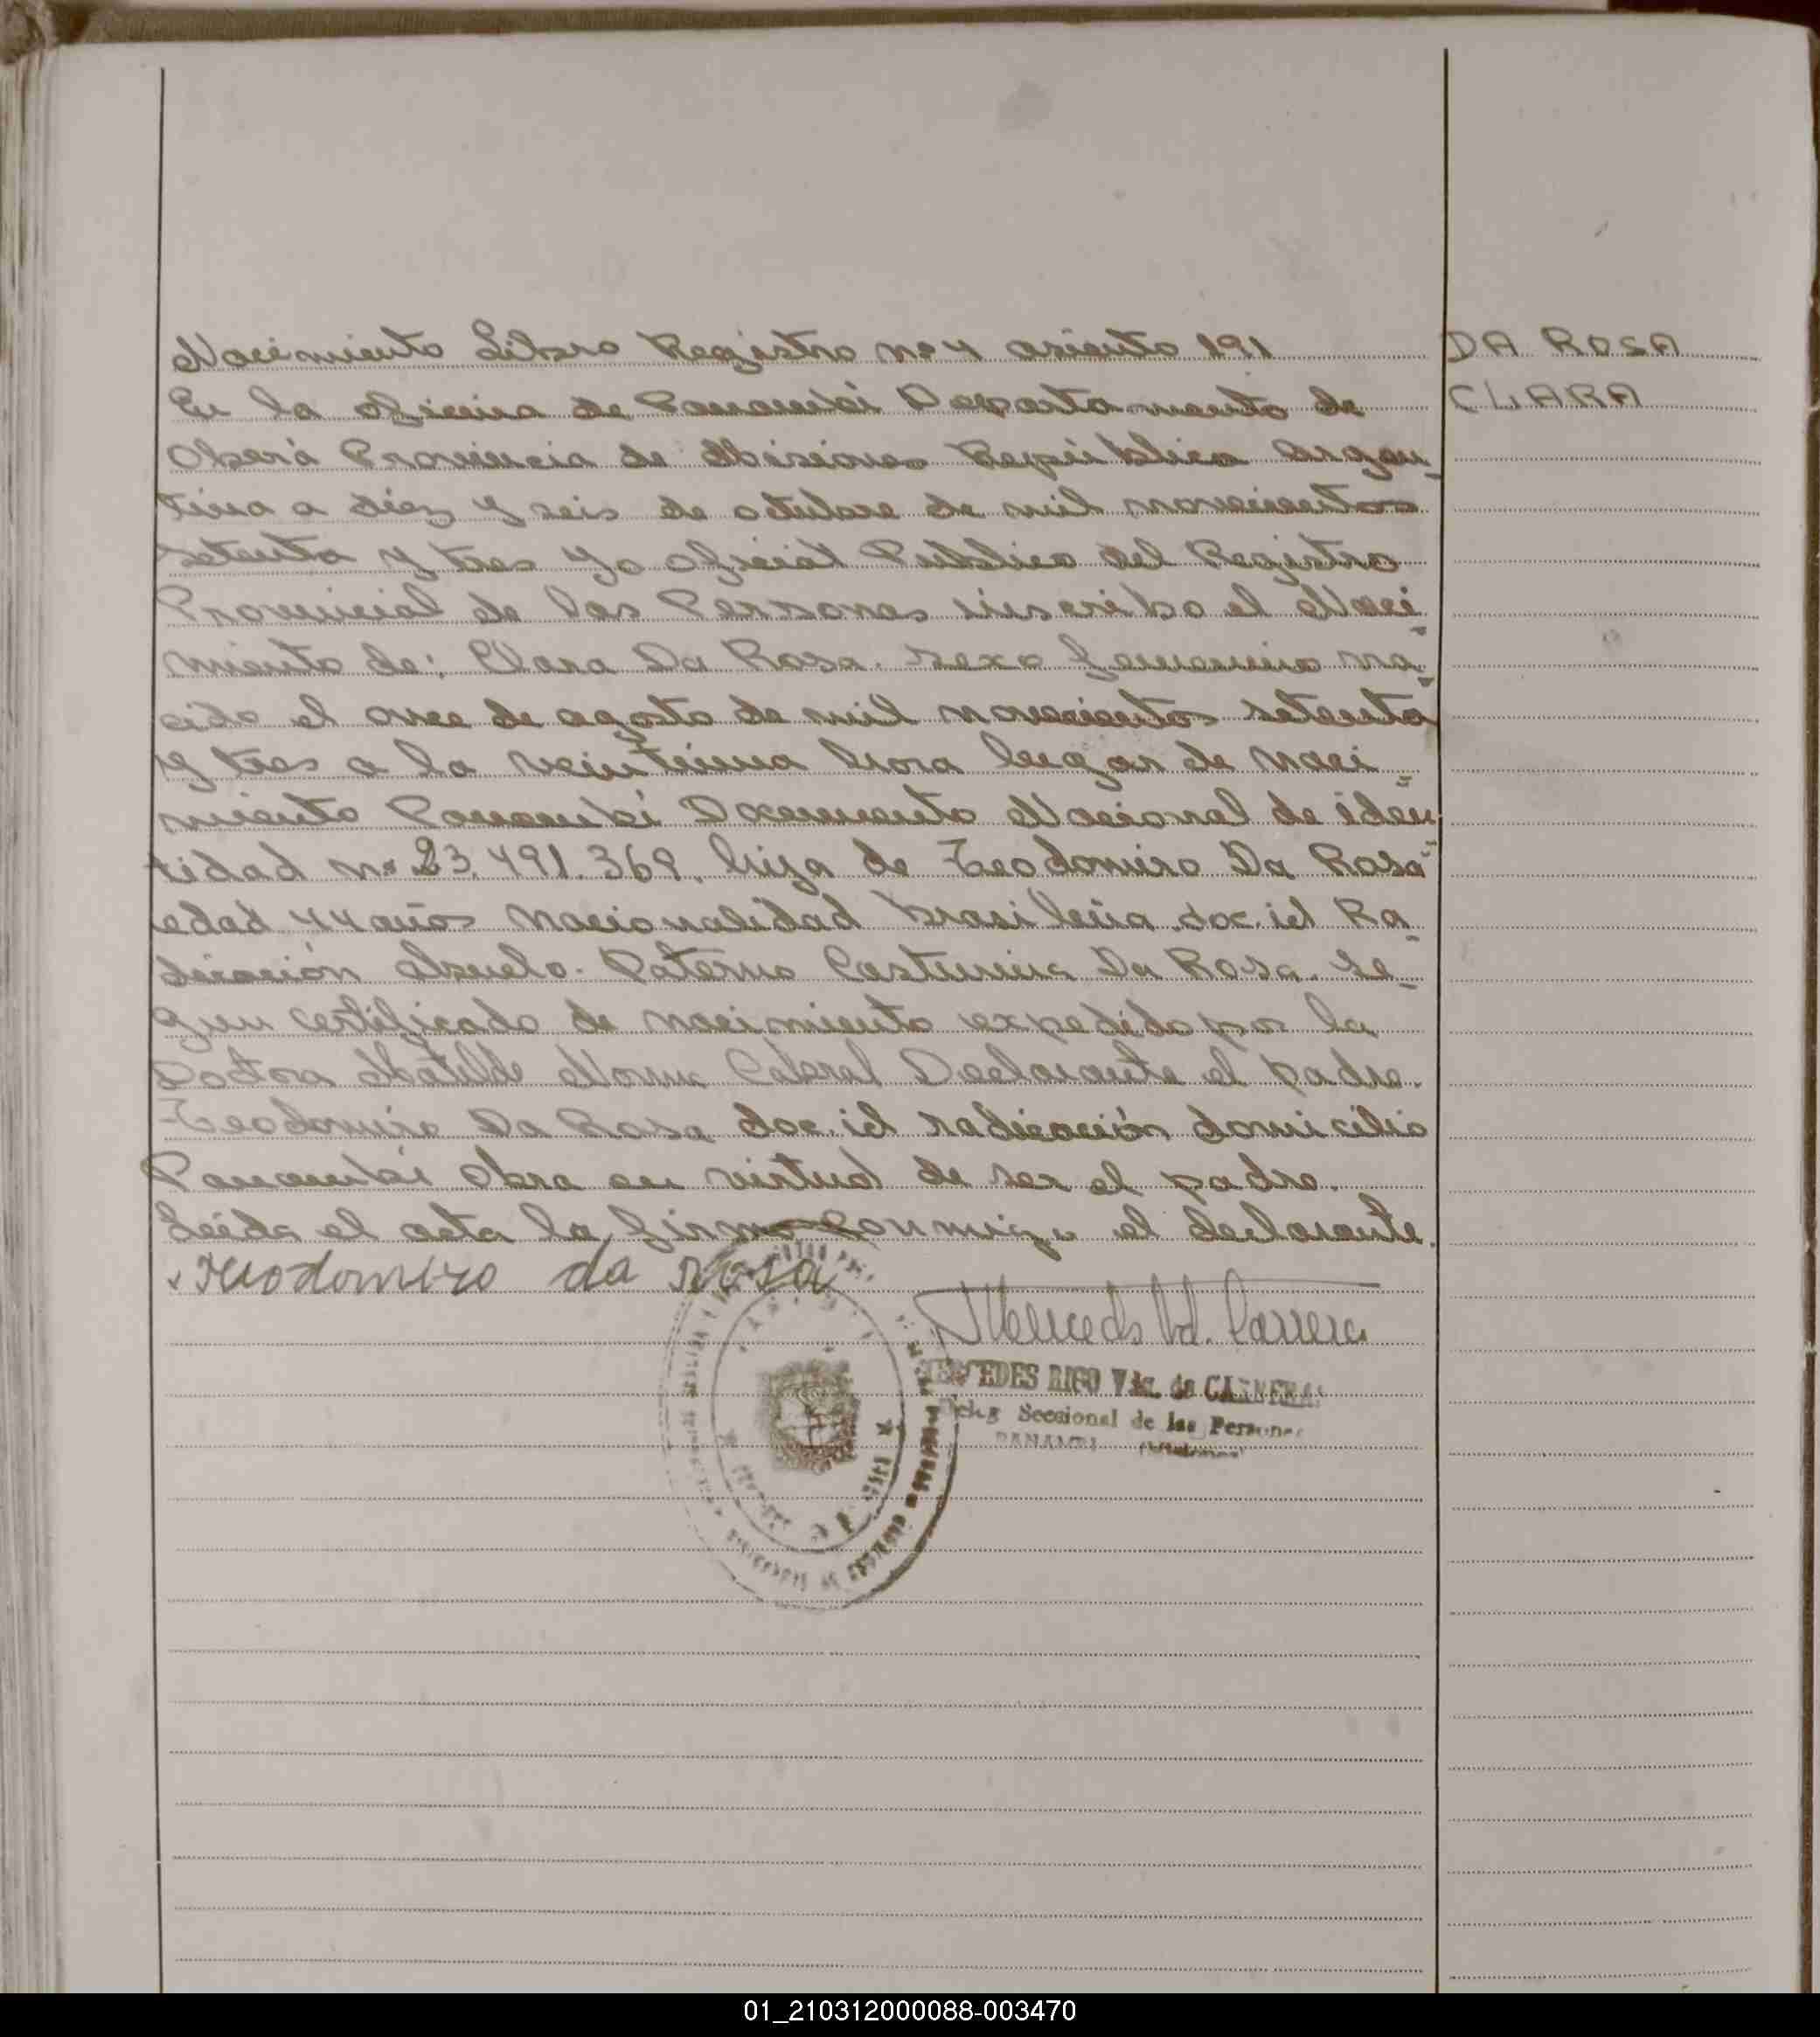 Nacimiento Libro Registro nº 4 asiento 191
DA ROSA
En la oficina de Panambí Departamento de
CLARA
Oberá Provincia de Misiones República Argen-
tina a diez y seis de octubre de mil novecientos
setenta y tres yo Oficial Publico del Registro
Provincial de las Personas inscribo el Naci-
miento de: Clara Da Rosa. sexo femenino na-
cido el once de agosto de mil novecientos setenta
y tres a la veintiuna hora lugar de naci-
miento Panambí Documento Nacional de iden-
tidad nº 23.491.369. hija de Teodomiro Da Rosa
edad 44 años nacionalidad brasileña doc. id Ra-
dicación Abuelo Paterno Da Rosa. se-
gun certificado de nacimiento expedido por la
Doctora Matilde Norma Cabral Declarante el padre.
Teodomiro Da Rosa doc. id radicación domicilio
Panambí Obra en virtud de ser el padre.
Leída el acta la firma conmigo el declarante.
Teodomiro da rosa
Mercedes Vd. Carrera
MERCEDES RIGO Vda. de CARRERA
Deleg Seccional de las Personas
PANAMBI (Misiones)
01_210312000088-003470